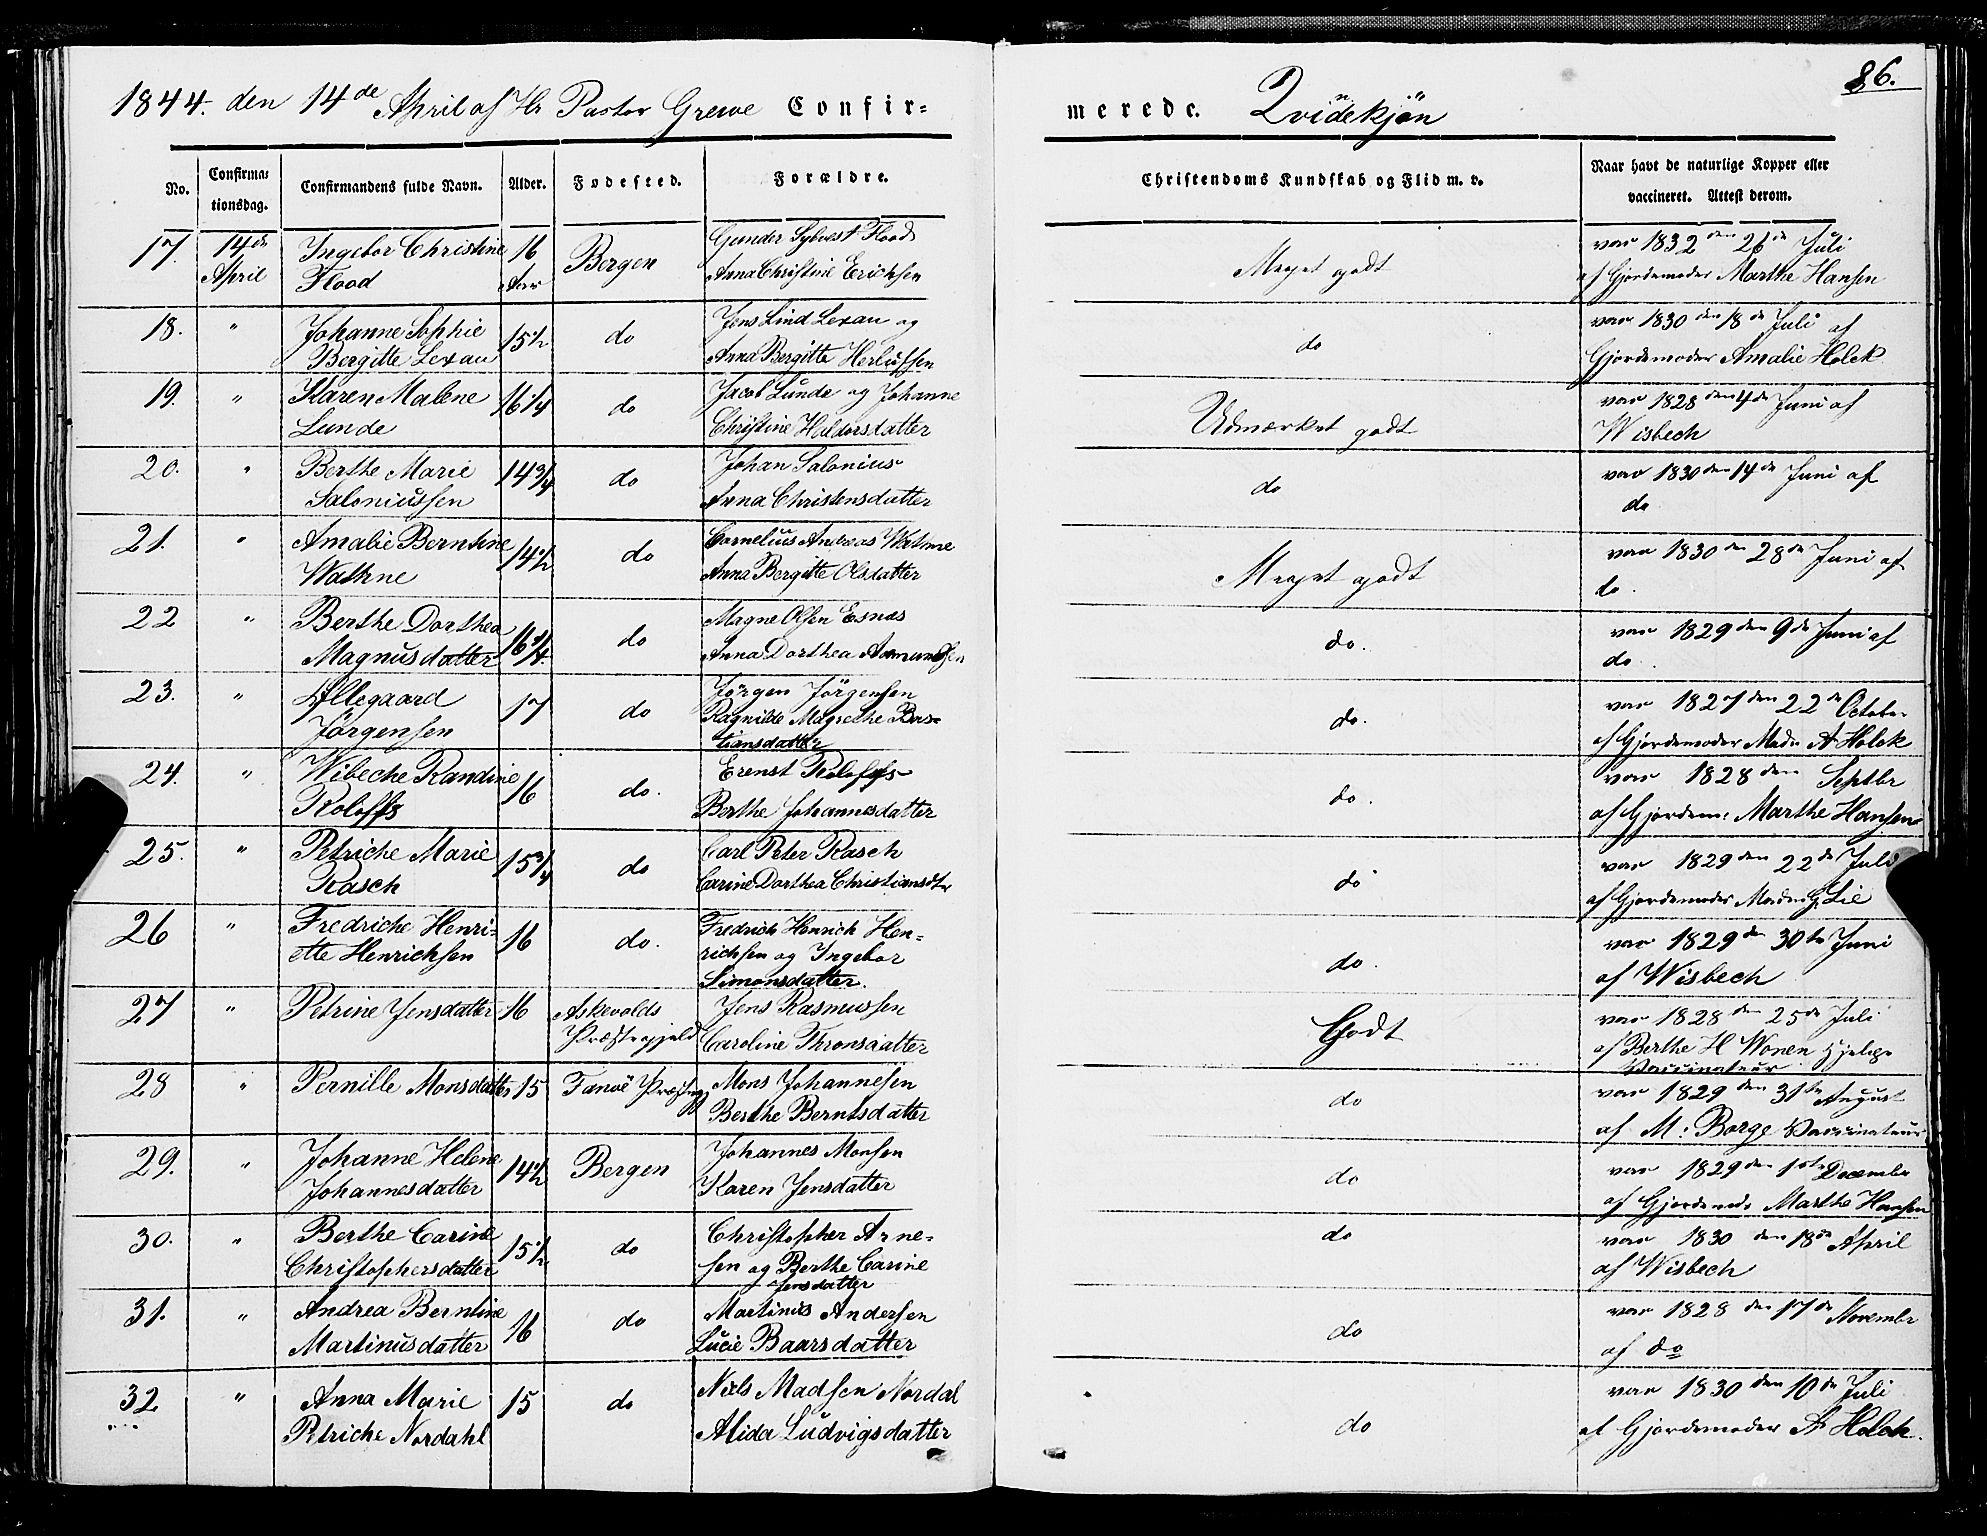 86.
1844. den 14de April af Hr Pastor Grewe Confir=
merede. Qvindekjön
No.
Confirma:
tionsdag.
Confirmandens fulde Navn.
Alder.
Fødested.
Forældre.
Christendoms Kundskab og Flid m. v.
Naar havt de naturlige Kopper eller
vaccineret. Attest derom.
17. 14de Ingebor Christine 16 Bergen Gunder Sylvest Flood Meget godt vac 1832 den 26de Juli
April Flood Aar Anna Christine Erichsen af Gjordemoder Marthe Hansen
18. " Johanne Sophie 15 1/2 do Jens Lind Lexau og do vac 1830 den 18de Juli af
Bergitte Lexau Anna Bergitte Herlufsen Gjordemoder Amalie Holck
19. " Karen Malene 16 1/4 do Jacob Lunde og Johanne Udmærket godt vac 1828 den 4de Juni af
Lunde Christine Haldorsdatter Wisbech
20. " Berthe Marie 14 3/4 do Johan Salonius do vac 1830 den 14de Juni af
Saloniussen Anna Christensdatter do
21. " Amalie Berntine 14 1/2 do Cornelius Andreas Wathne Meget godt vac 1830 den 28de Juni af
Wathne Anna Bergitte Olsdatter do.
22 " Berthe Dorthea 16 1/4. do Magne Olsen Esnæs do. vac 1829 den 9de Juni af
Magnusdatter Anna Dorthea Aamundsen do.
23. " Allegaard 17 do Jörgen Jörgensen do. vac 1827 den 22de October
Jörgensen Ragnilde Magrethe Bas=
tiansdatter af Gjordemoder Mad. A Holck
24. " Wibeche Randine 16 do. Erenst Roloffs do. vac 1828 den Septbr
Roloffs Berthe Johannesdatter af Gjordem: Marthe Hansen
25. " Petriche Marie 15 3/4 do Carl Peter Rasch do vac 1829 den 22de Juli
Rasch Carine Dorthea Christiansdtr af Gjordemoder Lie
26 " Fredriche Henri= 16 do. Fredrich Henrich Hen= do. vac 1829 den 30te Juni
ette Henrichsen richsen og Ingebor af Wisbech
Simonsdatter.
27 " Petrine Jensdatter 16 Askevolds Jens Rasmussen Godt vac 1828 den 25de Juli
Præstegjeld Caroline Thronsdatter af Berthe H Wonen Hjelpe
Vaccinateur
28 " Pernille Monsdatter 15 Fanöe Præsteg Mons Johannesen do vac 1829 den 31te August
Berthe Berntsdatter af M: Borge Vaccinateur
29. " Johanne Helene 14 1/2 Bergen Johannes Monsen do vac 1829 den 1ste Decembr
Johannesdatter Karen Jensdatter af Gjordemd: Marthe Hansen
30. " Berthe Carine 15 1/2 do Christopher Arne= do vac 1830 den 18de April
Christophersdatter sen og Berthe Carine af Wisbech
Jensdatter
31. " Andrea Berntine 16 do Martinus Andersen do vac 1828 den 17de Novembr
Martinusdatter Lucie Baarsdatter af do
32 " Anna Marie 15 do Niels Madsen Nordal do vac 1830 den 10de Juli
Petriche Nordahl Alida Ludvigsdatter af Gjordemoder A Holck.